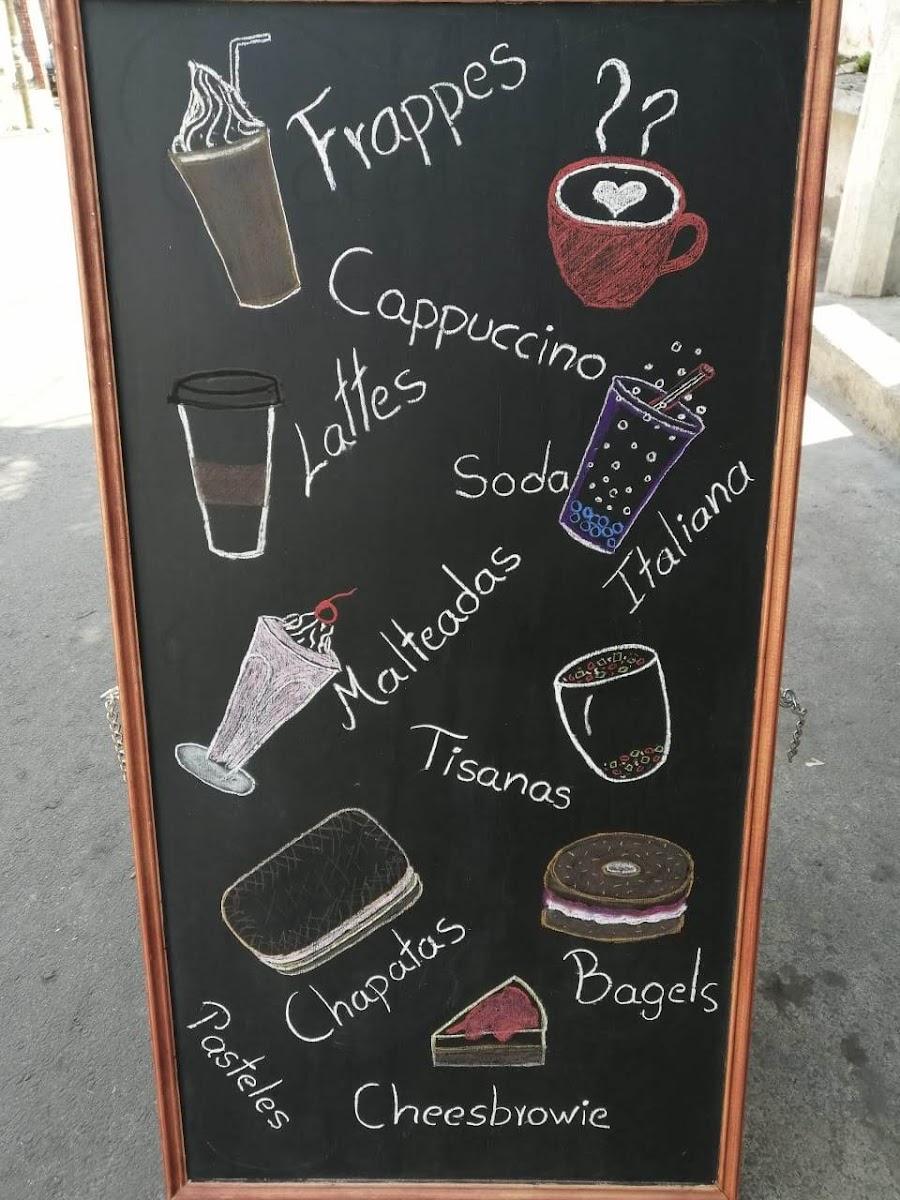 Frappes
Cappuccino
Lattes
Soda
Italiana
Malteadas
Tisanas
Chapatas
Bagels
Pasteles
Cheesbrowie